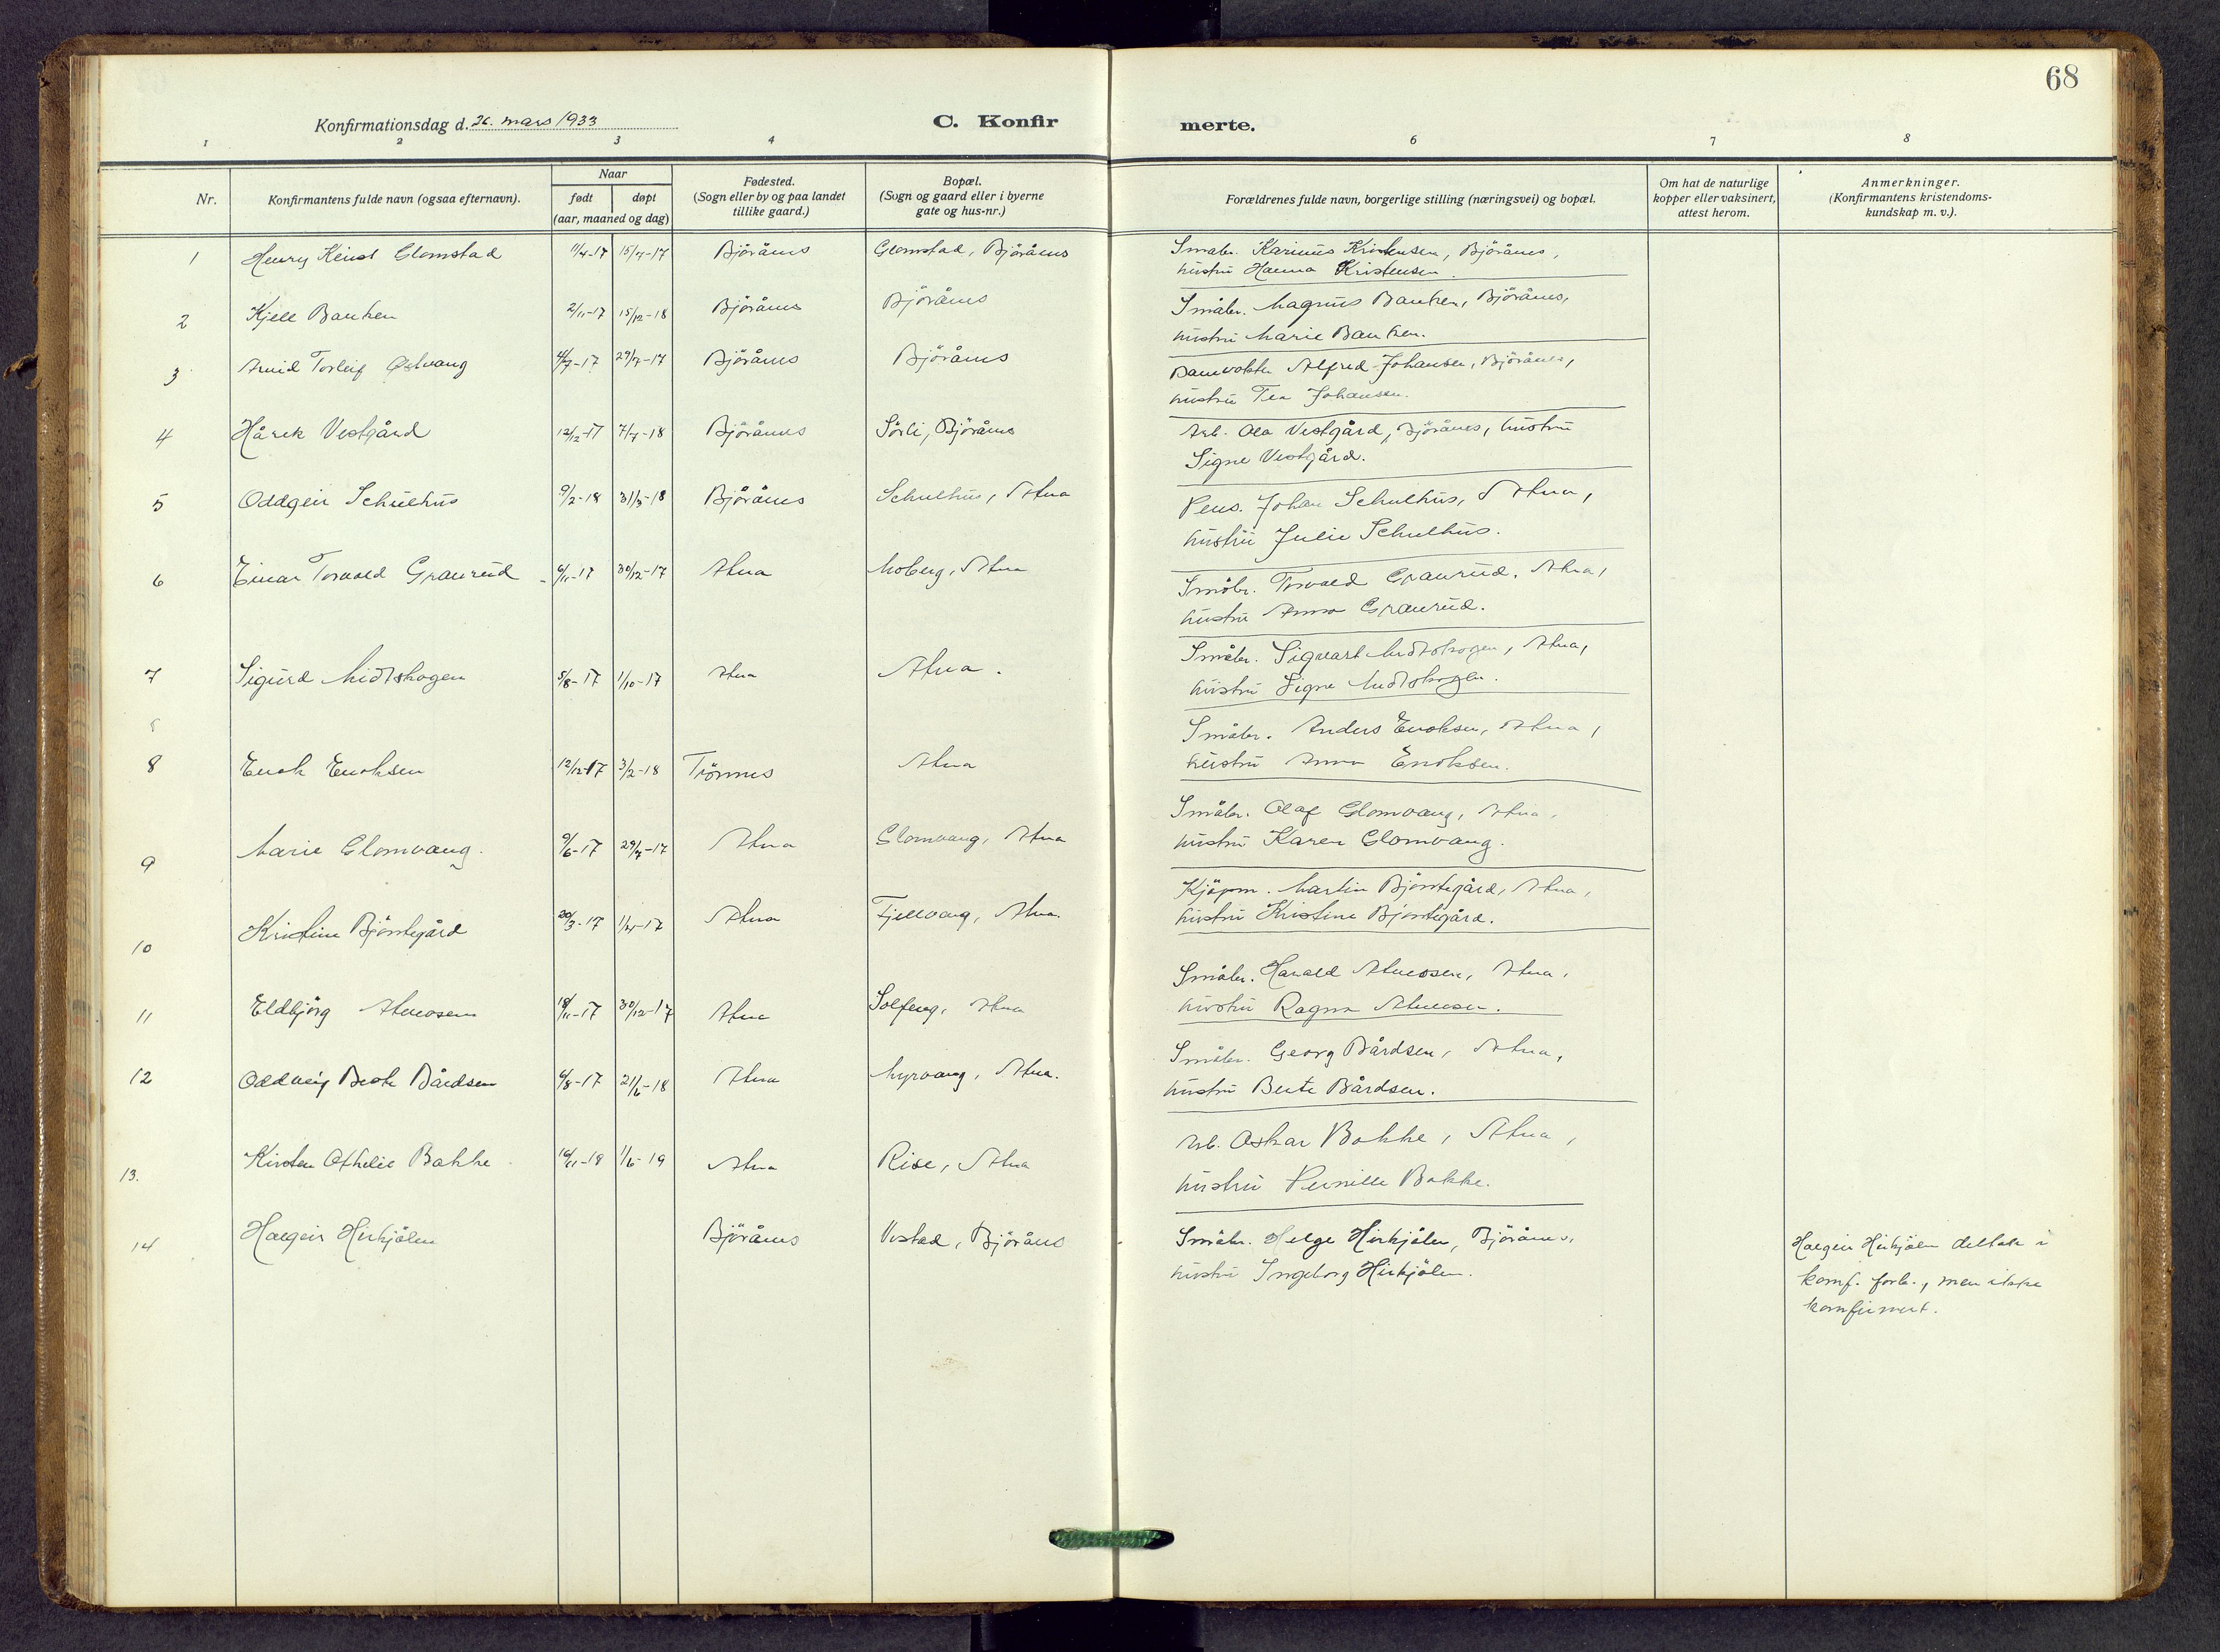 68
Konfirmationsdag d. 26. mars 1933
C. Konfir
merte.
1 2 3 4 6 7 8
Nr.
Konfirmantens fulde navn (ogsaa efternavn).
Naar
født døpt
(aar, maaned og dag)
Fødested.
(Sogn eller by og paa landet
tillike gaard.)
Bopæl.
(Sogn og gaard eller i byerne
gate og hus-nr.)
Forældrenes fulde navn, borgerlige stilling (næringsvei) og bopæl.
Om hat de naturlige
kopper eller vaksinert,
attest herom.
Anmerkninger.
(Konfirmantens kristendoms-
kundskap m. v.).
1 Henry Glomstad 11/4-17 15/7-17 Björånes Glomstad, Björånes Småbr. Karinius Kristensen, Björånes,
hustru Hanna Kristensen
2 Kjell Banken 2/11-17 15/12-18 Björånes Björånes Småbr. Magnus Banken, Björånes,
hustru Marie Banken.
3 Arvid Torleif Østvang 4/7-17 29/7-17 Björånes Björånes Banevokter Alfred Johansen, Björånes,
hustru Tea Johansen.
4 Hårek Vestgård 12/12-17 7/7-18 Björånes Sörli, Björånes Arb. Ola Vestgård, Björånes, hustru
Signe Vestgård.
5 Oddgeir Schulhus 9/2-18 31/3-18 Björånes Schulhus, Atna Pens. Johan Schulhus, Atna,
hustru Julie Schulhus.
6 Einar Torvald Granrud 6/11-17 30/12-17 Atna Moberg, Atna Småbr. Torvald Granrud, Atna,
hustru Anna Granrud.
7 Sigurd Midtskogen 5/8-17 1/10-17 Atna Atna. Småbr. Sigvart Midtskogen, Atna,
hustru Signe Midtskogen.
8 Enok Enoksen 12/12-17 3/2-18 Trönnes Atna Småbr. Anders Enoksen, Atna,
hustru Anna Enoksen.
9 Marie Glomvang. 9/6-17 29/7-17 Atna Glomvang, Atna Småbr. Olaf Glomvang, Atna,
hustru Karen Glomvang.
10 Kristine Bjöntegård 20/3-17 1/4-17 Atna Fjellvang, Atna. Kjöpm. Martin Bjöntegård, Atna,
hustru Kristine Bjöntegård.
11 Eldbjörg Atneosen 18/11-17 30/12-17 Atna Solfeng, Atna Småbr. Harald Atneosen, Atna,
hustru Ragna Atneosen.
12 Oddveig Beate Bårdsen 6/8-17 21/6-18 Atna Myrvang, Atna. Småbr. Georg Bårdsen, Atna,
hustru Beate Bårdsen.
13. Kirsten Othelie Bakke 16/11-18 1/6-19 Atna Rise, Atna Arb. Oskar Bakke, Atna,
hustru Pernille Bakke.
14 Halgeir Hirkjölen Björånes Vestad, Björånes Småbr. Helge Hirkjölen, Björånes,
hustru Ingeborg Hirkjölen.
Halgeir Hirkjölen deltok i
konf. forb., men ikke
konfirmert.